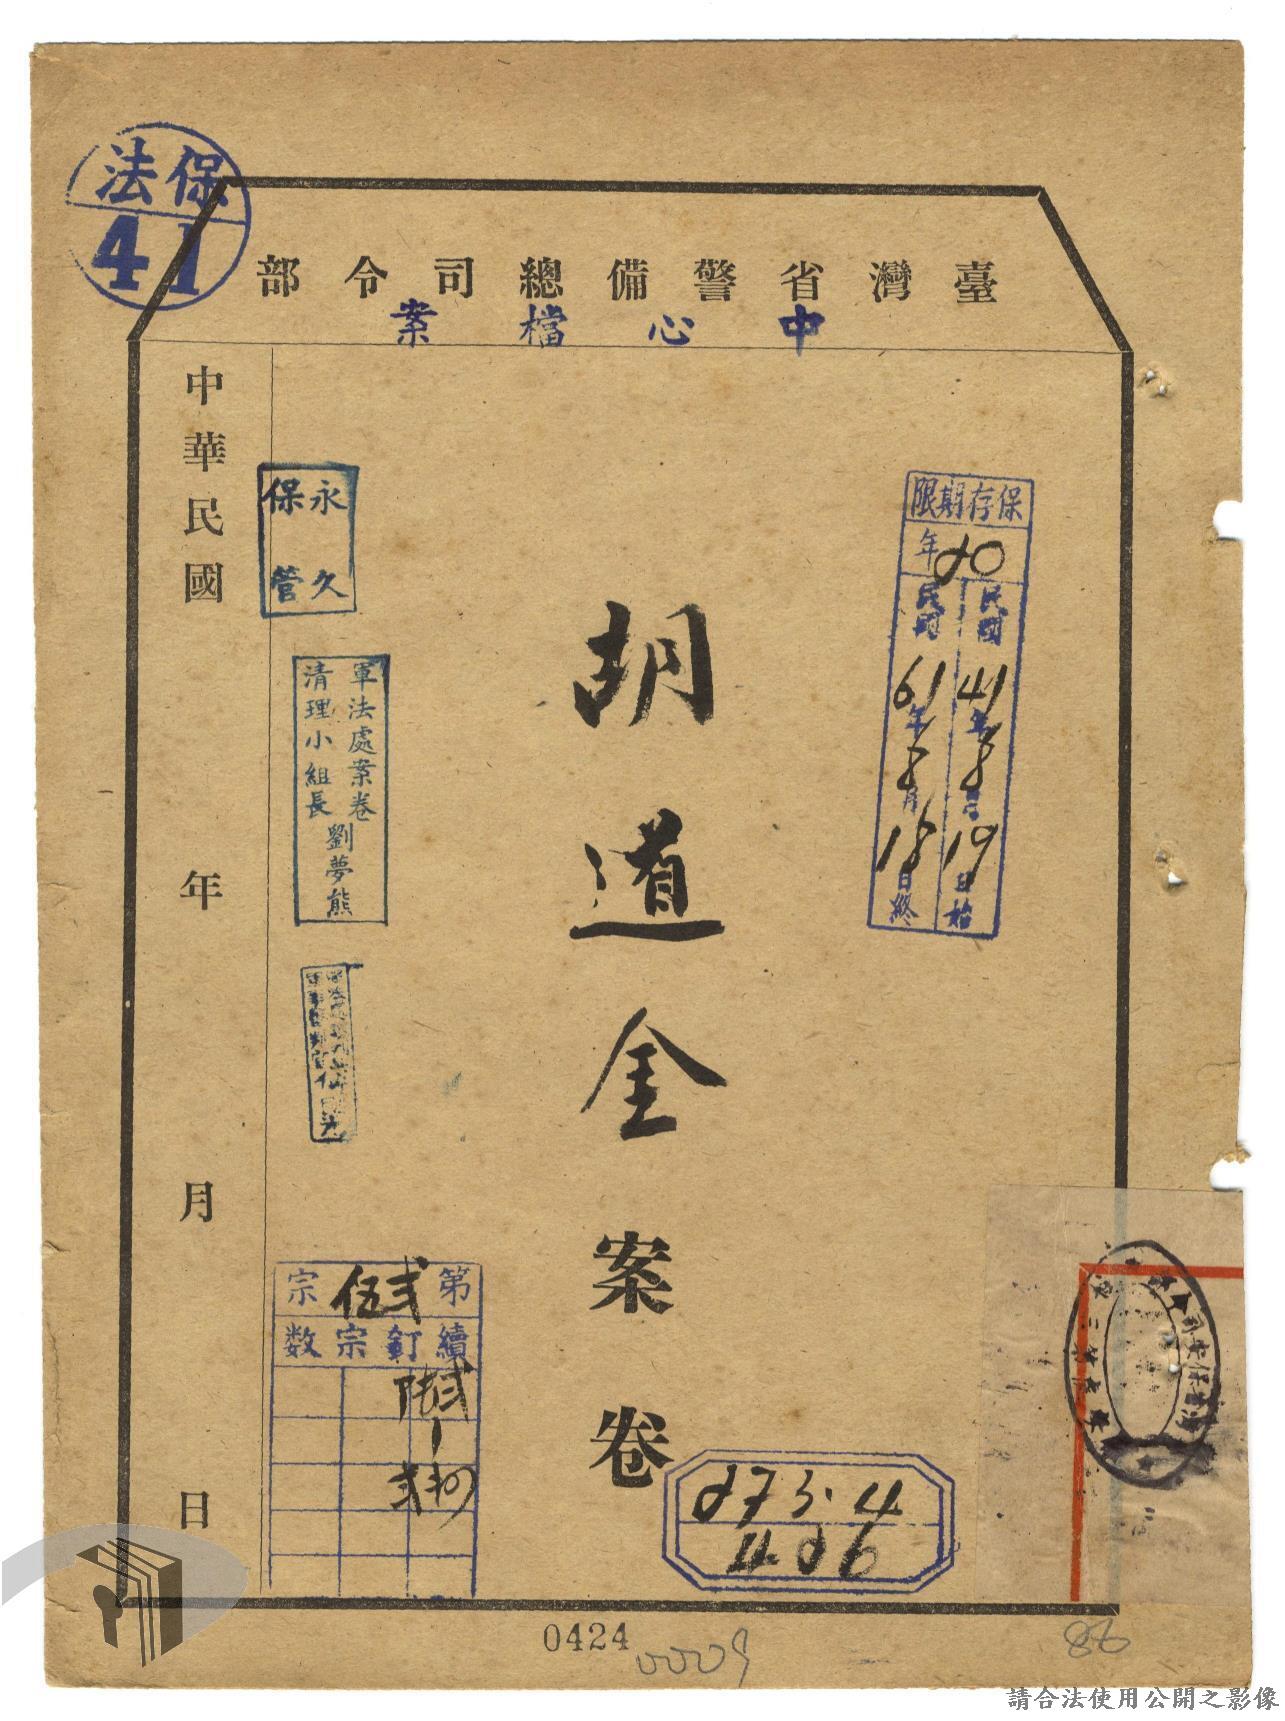 保法
41
臺灣省警備總司令部
中心檔案
中華民國 年 月 日
保存期限
20年
民國41年8月19日始
民國61年8月18日終
胡道全案卷
永久
保管
軍法處案卷
清理小組長
劉夢熊
第貳伍宗
續訂宗數
273.4
4026
0424
0009
86
請合法使用公開之影像